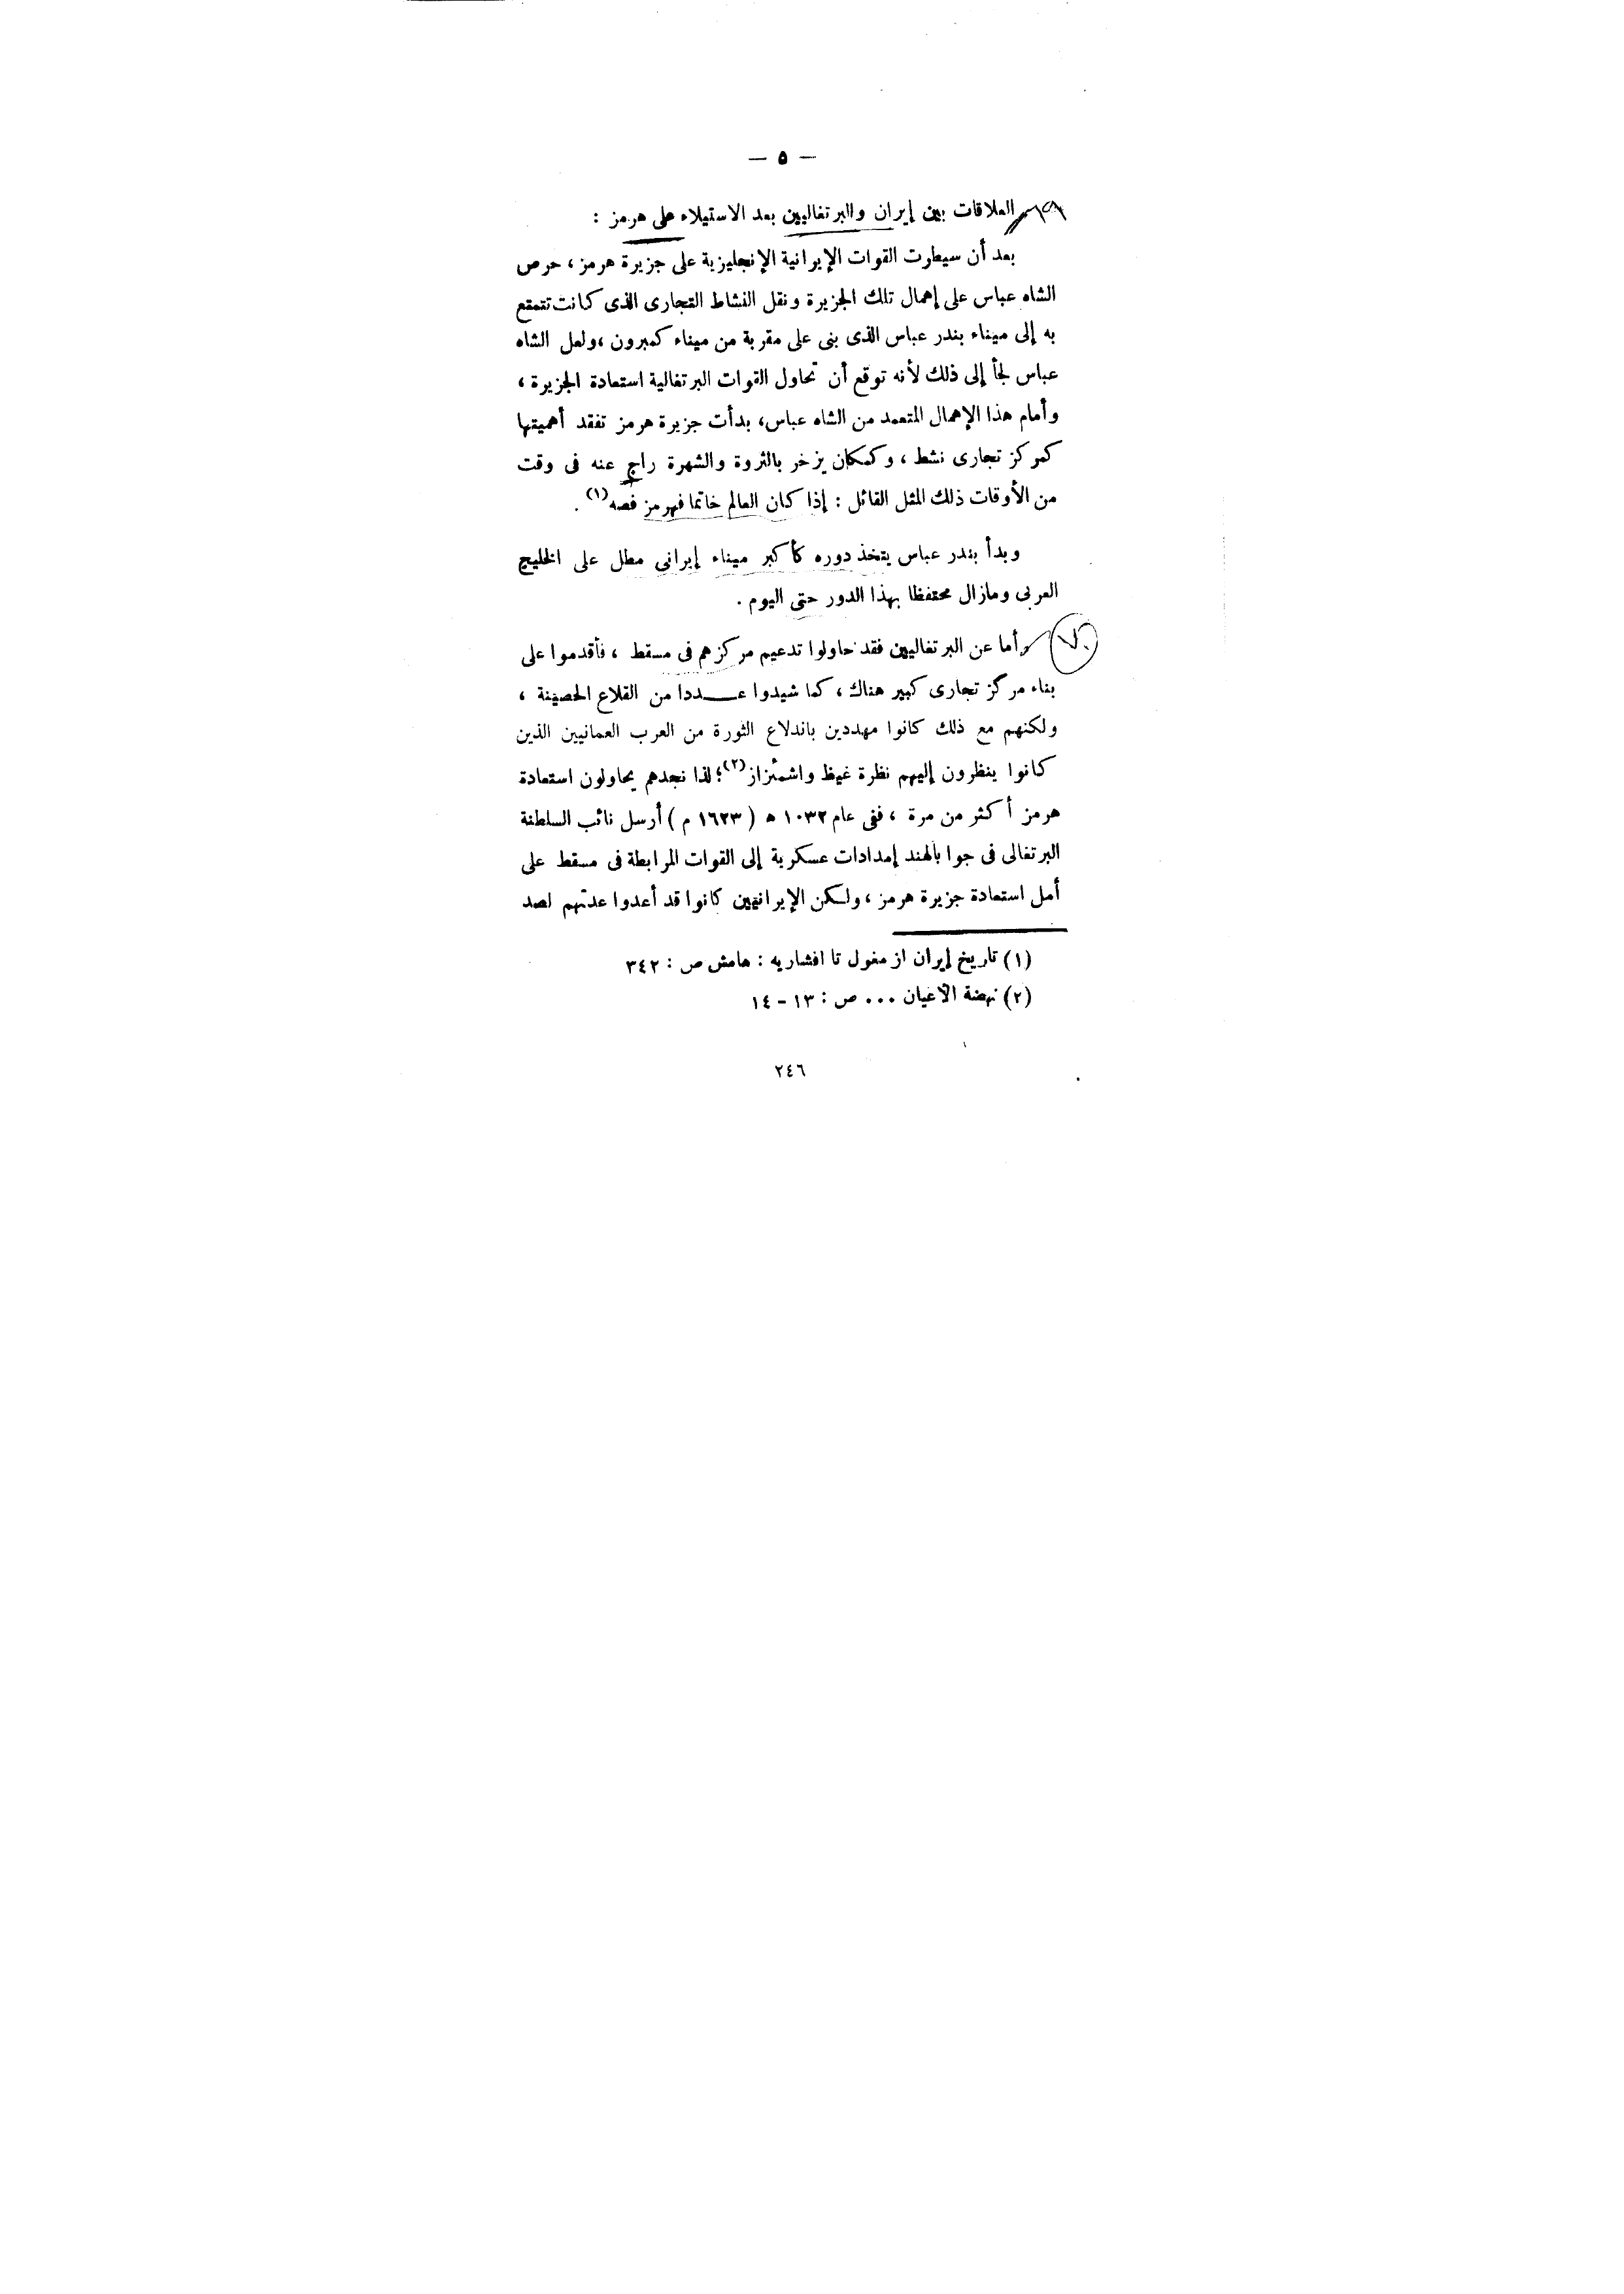 — ٥ —
٦٩ العلاقات بين إيران والبرتغاليين بعد الاستيلاء على هرمز :
بعد أن سيطرت القوات الإيرانية الإنجليزية على جزيرة هرمز ، حرص
الشاه عباس على إهمال تلك الجزيرة ونقل النشاط التجارى الذى كانت تتمتع
به إلى ميناء بندر عباس الذى بنى على مقربة من ميناء كمبرون ، ولعل الشاه
عباس لجأ إلى ذلك لأنه توقع أن تحاول القوات البرتغالية استعادة الجزيرة ،
وأمام هذا الإهمال المتعمد من الشاه عباس، بدأت جزيرة هرمز تفقد أهميتها
كمركز تجارى نشط ، وكمكان يزخر بالثروة والشهرة راج عنه فى وقت
من الأوقات ذلك المثل القائل : إذا كان العالم خاتما فهرمز فُصه (١) .
وبدأ بندر عباس يتخذ دوره كأكبر ميناء إيرانى مطل على الخليج
العربى ومازال محتفظا بهذا الدور حتى اليوم .
٧٠ وأما عن البرتغاليين فقد حاولوا تدعيم مركزهم فى مسقط ، فأقدموا على
بناء مركز تجارى كبير هناك ، كما شيدوا عـــددا من القلاع الحصينة ،
ولكنهم مع ذلك كانوا مهددين باندلاع الثورة من العرب العمانيين الذين
كانوا ينظرون إليهم نظرة غيظ واشمئزاز (٢)؛ لذا نجدهم يحاولون استعادة
هرمز أكثر من مرة ، ففى عام ١٠٣٢ ه ( ١٦٢٣ م ) أرسل نائب السلطنة
البرتغالى فى جوا بالهند إمدادات عسكرية إلى القوات المرابطة فى مسقط على
أمل استعادة جزيرة هرمز ، ولكن الإيرانيين كانوا قد أعدوا عدتهم لصد
(١) تاريخ إيران از مغول تا افشاريه : هامش ص : ٣٤٢
(٢) نهضة الأعيان ... ص : ١٣ - ١٤
٢٤٦